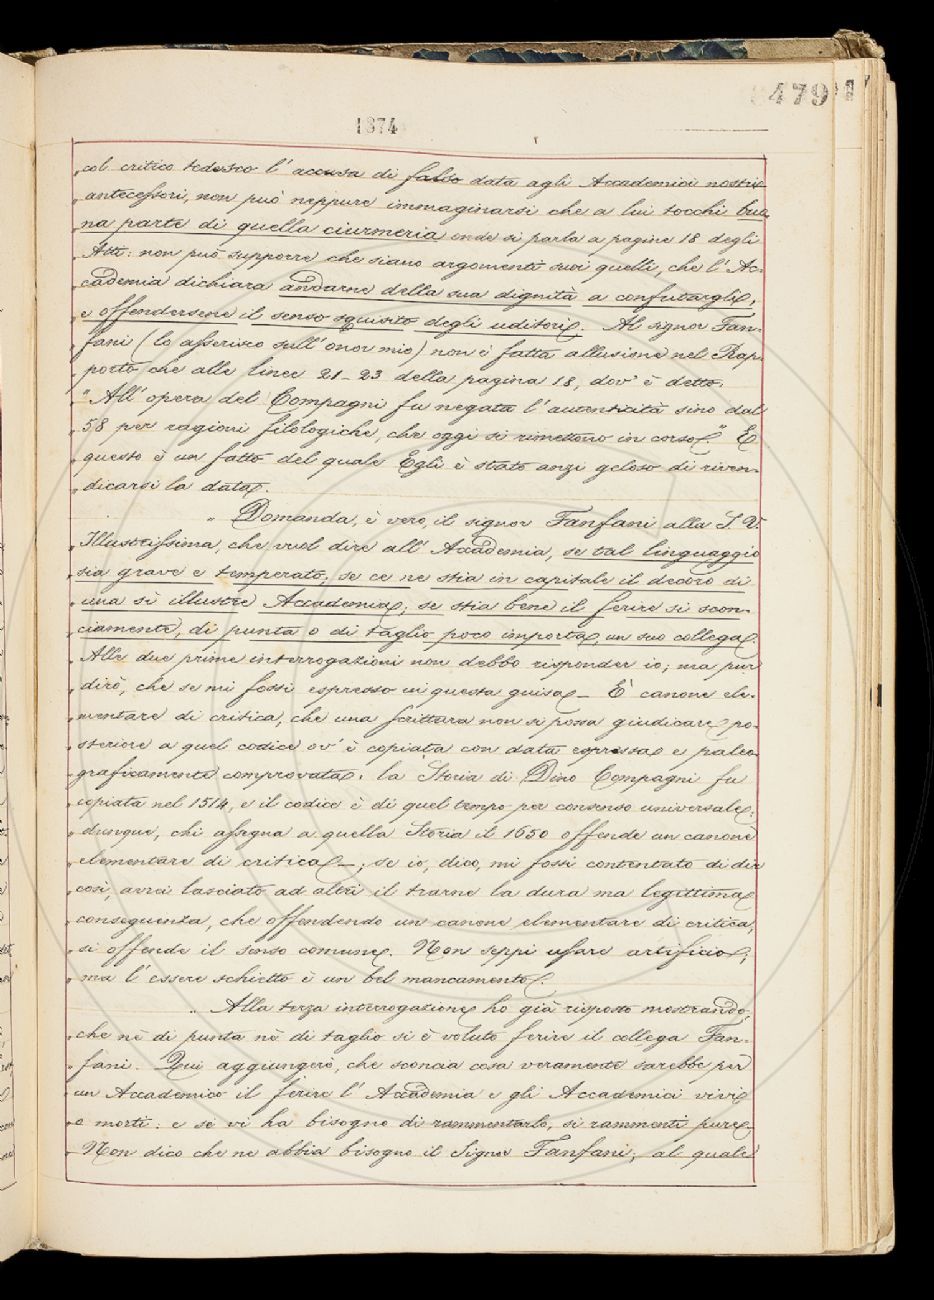 479
1874
„ col critico tedesco l'accusa di falso data agli Accademici nostri
„ antecessori, non può neppure immaginarsi che a lui tocchi buo
„ na parte di quella ciurmeria onde si parla a pagine 18 degli
„ Atti: non può supporre che siano argomenti suoi quelli, che l'Ac-
„ cademia dichiara andarne della sua dignità a confutargli,
„ e offendersene il senso squisito degli uditori. Al signor Fan-
„ fani (lo asserisco sull'onor mio) non è fatta allusione nel Rap-
„ porto che alle linee 21-23 della pagina 18, dov'è detto.
„ "All'opera del Compagni fu negata l'autenticità sino dal
„ 58 per ragioni filologiche, che oggi si rimettono in corso" E
„ questo è un fatto del quale Egli è stato anzi geloso di riven-
„ dicarsi la data.
„ Domanda, è vero, il signor Fanfani alla S. V.
„ Illustrissima, che vuol dire all'Accademia, se tal linguaggio
„ sia grave e temperato; se ce ne stia in capitale il decoro di
„ una sì illustre Accademia; se stia bene il ferire sì scon-
„ ciamente, di punta o di taglio poco importa, un suo collega.
„ Alle due prime interrogazioni non debbo risponder io; ma pur
„ dirò, che se mi fossi espresso in questa guisa - È canone ele-
„ mentare di critica, che una scrittura non si possa giudicare po-
„ steriore a quel codice ov'è copiata con data espressa e paleo
„ graficamente comprovata: la Storia di Dino Compagni fu
„ copiata nel 1514, e il codice è di quel tempo per consenso universale:
„ dunque, chi assegna a quella Storia il 1650 offende un canone
„ elementare di critica -; se io, dico, mi fossi contentato di dir
„ così, avrei lasciato ad altri il trarne la dura ma legittima
„ conseguenza, che offendendo un canone elementare di critica,
„ si offende il senso comune. Non seppi usare artificio;
„ ma l'essere schietto è un bel mancamento.
„ Alla terza interrogazione ho già risposto mostrando,
„ che nè di punta nè di taglio si è voluto ferire il collega Fan-
„ fani. Qui aggiungerò, che sconcia cosa veramente sarebbe per
„ un Accademico il ferire l'Accademia e gli Accademici vivi
„ o morti: e se vi ha bisogno di rammentarlo, si rammenti pure.
„ Non dico che ne abbia bisogno il Signor Fanfani; al quale